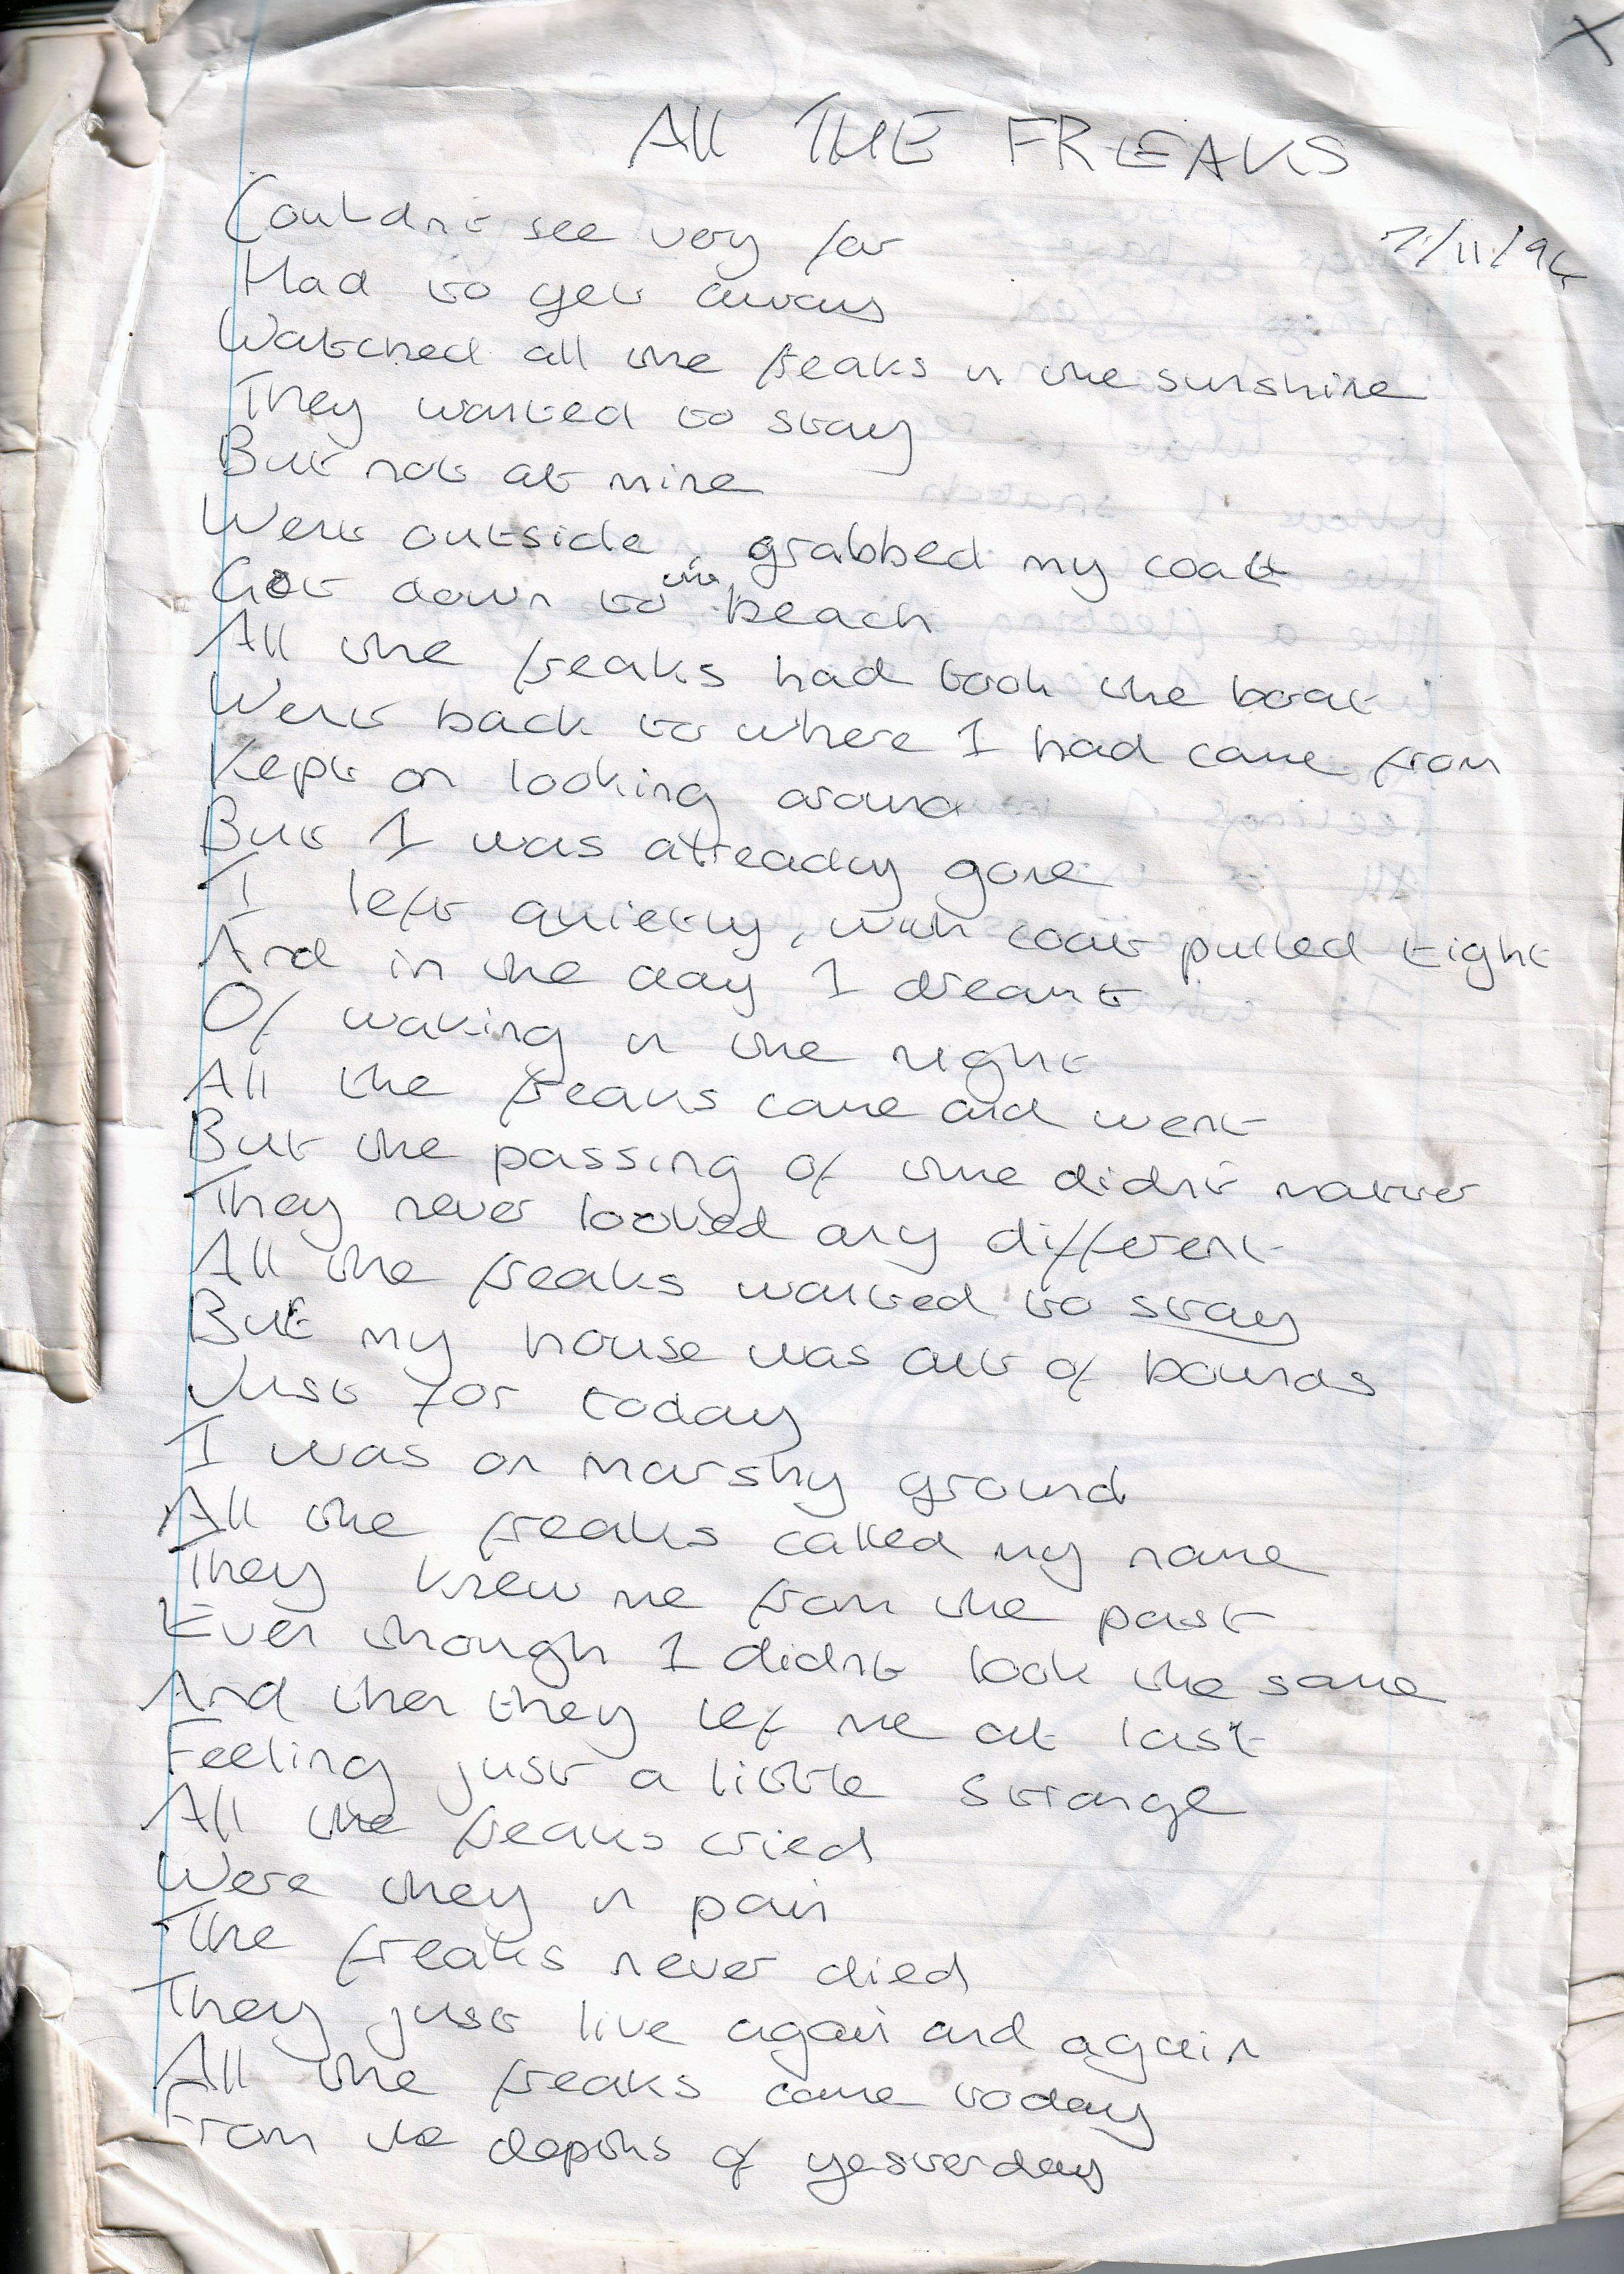 All THE FREAKS
7/11/94
Couldn't see very far
Had to get away
Watched all the freaks in the sunshine
They wanted to stay
But not at mine
Went outside, grabbed my coat
Got down to the beach
All the freaks had took the boat
Went back to where I had came from
Kept on looking around
But I was already gone
I left quietly, with coat pulled tight
And in the day I dreamt
Of waking in the night
All the freaks came and went
But the passing of time didn't matter
They never looked any different
All the freaks wanted to stay
But my house was out of bounds
Just for today
I was on marshy ground
All the freaks called my name
They knew me from the past
Even though I didn't look the same
And then they lef me at last
Feeling just a little strange
All the freaks cried
Were they in pain
The freaks never died
They just live again and again
All the freaks came today
From the depths of yesterday